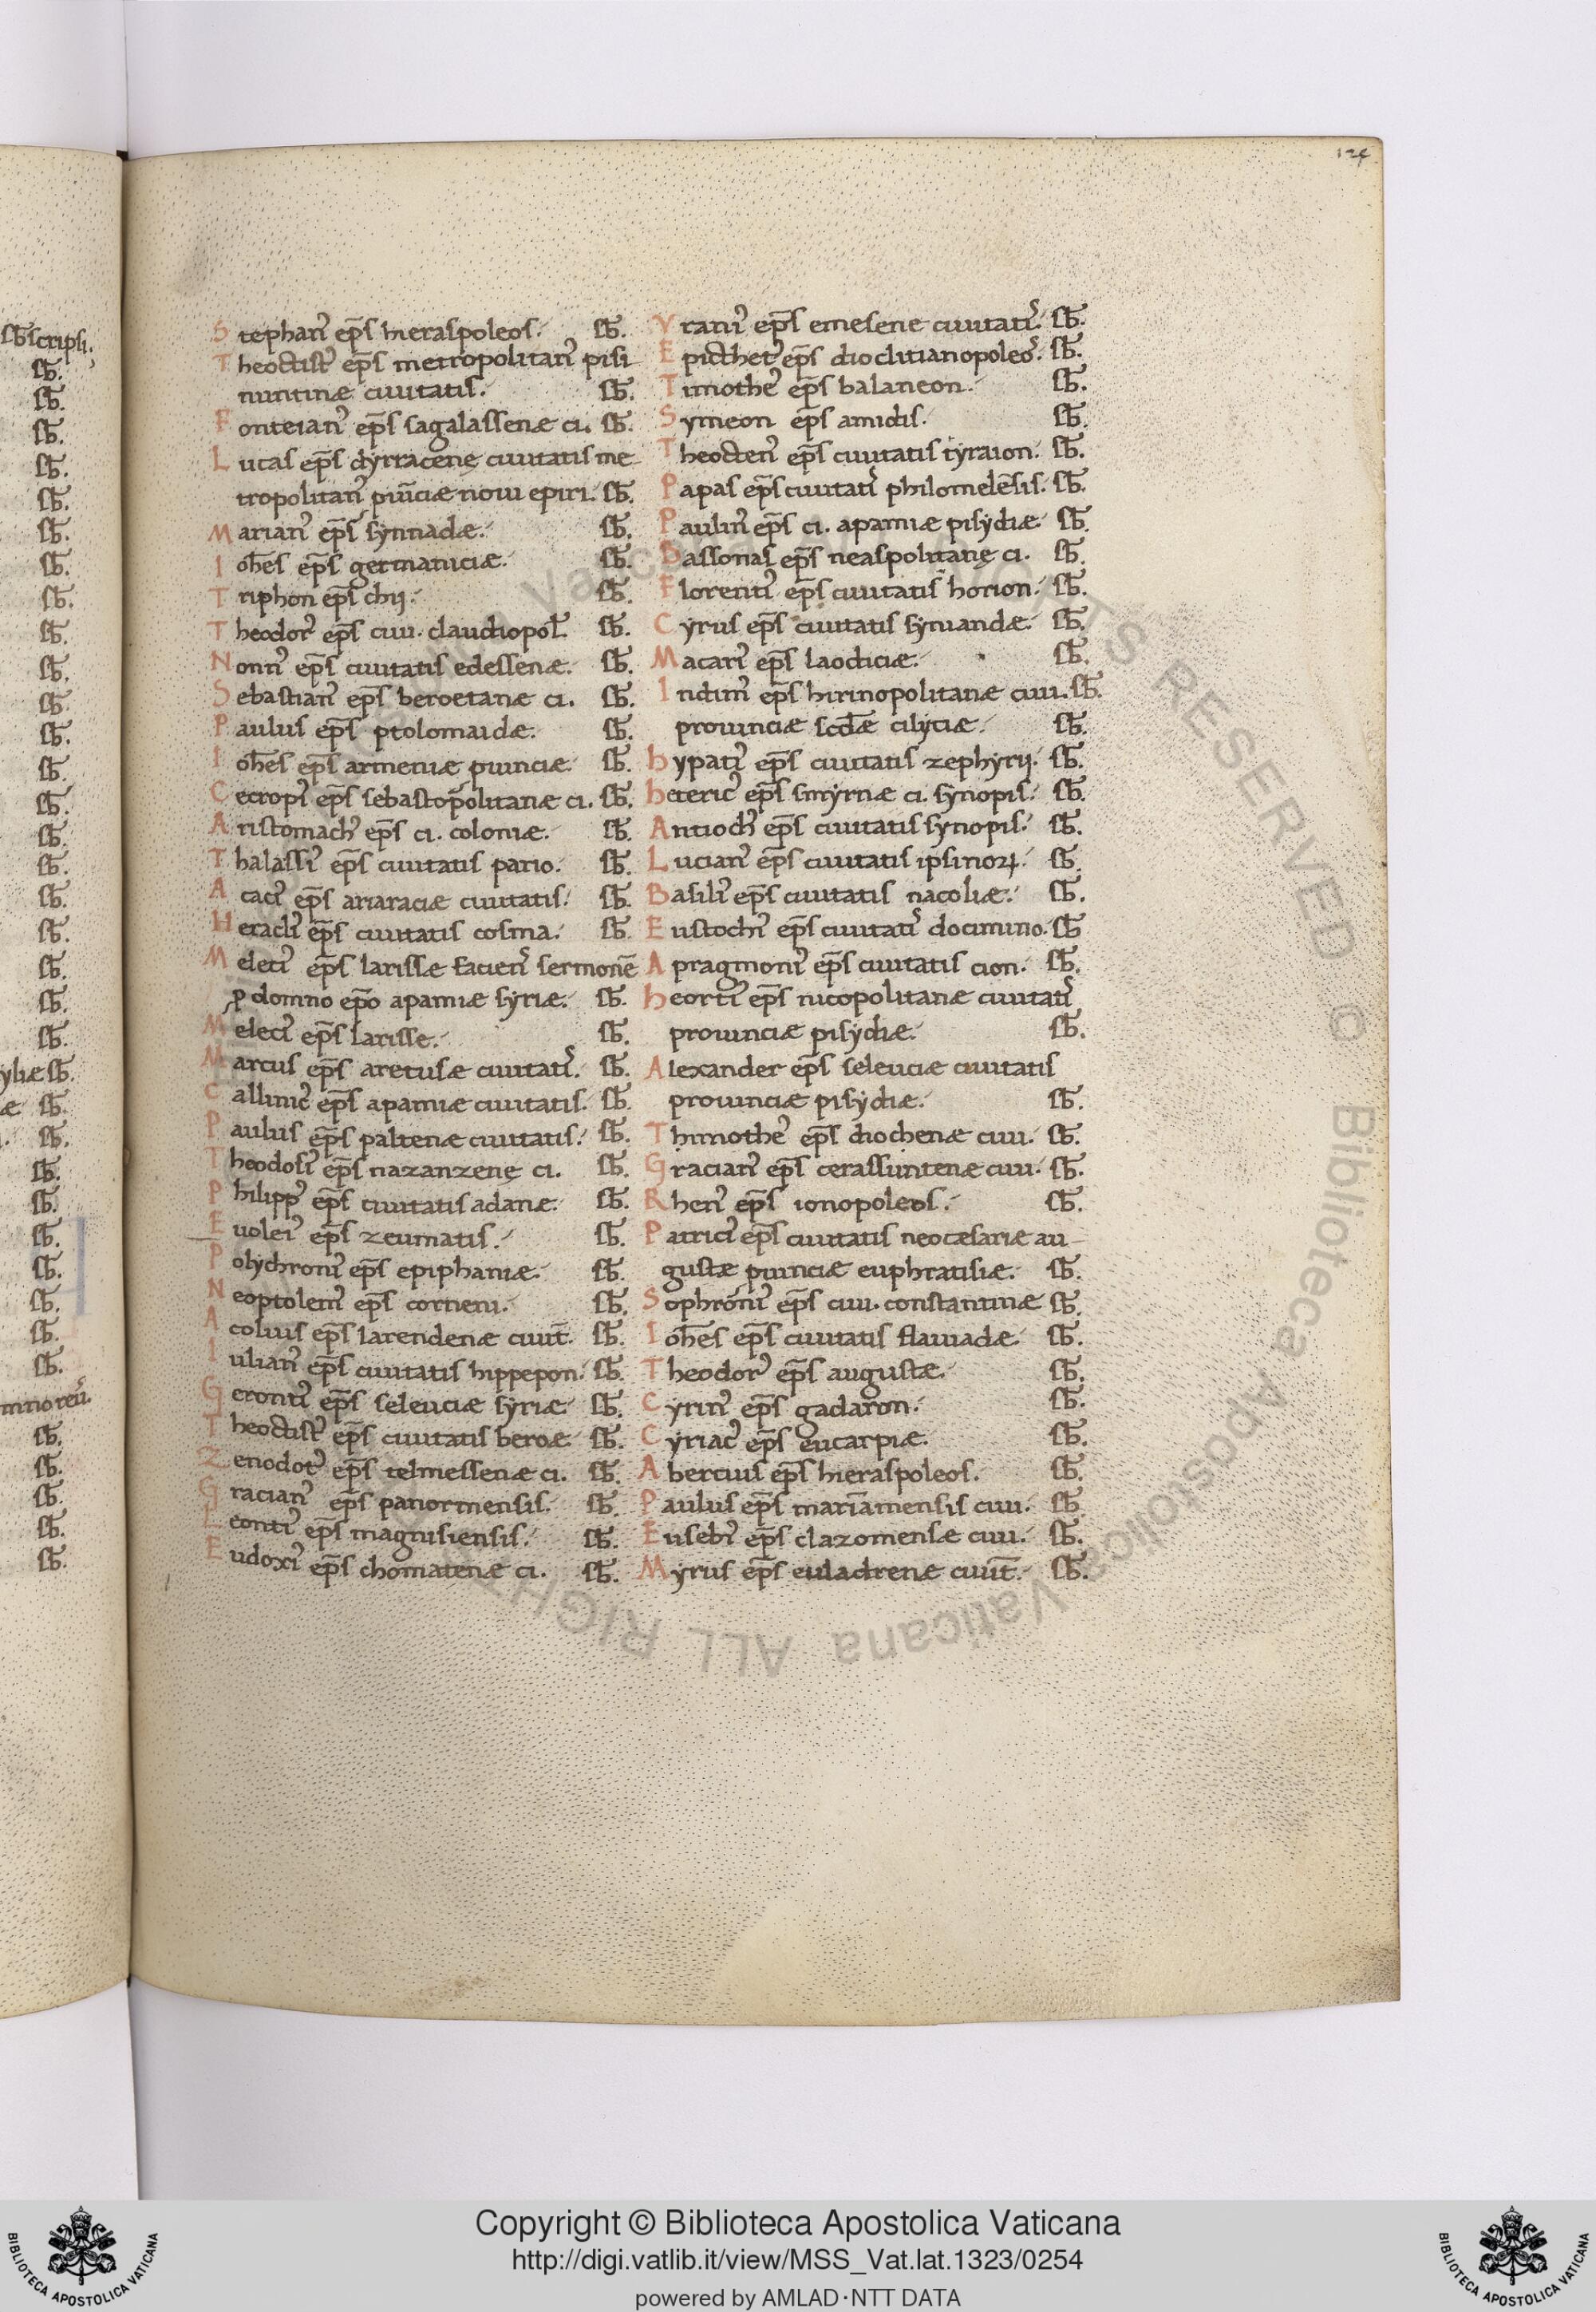 124
Stephan᾽ ep̅s hieraspoleos. sb̅.
Theoctist᾽ ep̅s metropolitan᾽ pisi
nuntinæ ciuitatis. sb̅.
Fonteian᾽ ep̅s sagalassenæ ci. sb̅.
Lucas ep̅s dyrracenę ciuitatis me
tropolitan᾽ ꝓuīciæ noui epiri. sb̅.
Marian᾽ ep̅s synnadæ. sb̅.
Ioh̅es ep̅s germaniciæ. sb̅.
Triphon ep̅s chij. sb̅.
Theodor᾽ ep̅s ciui. claudiopol̅. sb̅.
Nonn᾽ ep̅s ciuitatis edessenæ. sb̅.
Sebastian᾽ ep̅s beroetanæ ci. sb̅.
Paulus ep̅s ptolomaidæ. sb̅.
Ioh̅es ep̅s armeniæ ꝓuinciæ. sb̅.
Cecrops ep̅s sebastopolitanæ ci. sb̅.
Aristomach᾽ ep̅s ci. coloniæ. sb̅
Thalassi᾽ ep̅s ciuitatis pario. sb̅.
Acaci᾽ ep̅s ariaraciæ ciuitatis. sb̅.
Heracli᾽ ep̅s ciuitatis cosma. sb̅.
Meleci᾽ ep̅s larissæ faciens sermonē
ꝓ domno ep̅o apamiæ syriæ. sb̅.
Meleci᾽ ep̅s larisse. sb̅.
Marcus ep̅s aretusæ ciuitati᾽. sb̅.
Callinic᾽ ep̅s apamiæ ciuitatis. sb̅.
Paulus ep̅s paltenæ ciuitatis. sb̅.
Theodosi᾽ ep̅s nazanzenę ci. sb̅.
Philipp᾽ ep̅s ciuitatis adanæ. sb̅.
Euolei᾽ ep̅s zeumatis. sb̅.
Polychroni᾽ ep̅s epiphaniæ. sb̅.
Neoptolem᾽ ep̅s corneni. sb̅.
Acoluis ep̅s larendenæ ciuit̅. sb̅.
Iulian᾽ ep̅s ciuitatis hippepon. sb̅.
Geronti᾽ ep̅s seleuciæ syriæ. sb̅.
Theoctist᾽ ep̅s ciuitatis beroæ. sb̅.
Zenodot᾽ ep̅s telmessenæ ci. sb̅.
Gracian᾽ ep̅s panormensis. sb̅.
Leonti᾽ ep̅s magnisiensis. sb̅.
Eudoxi᾽ ep̅s chomatenæ ci. sb̅.
Vrani᾽ ep̅s emesene ciuitati᾽. sb̅.
Epicthet᾽ ep̅s dioclitianopoleo᾽. sb̅.
Timothe᾽ ep̅s balaneon. sb̅.
Symeon ep̅s amidis. sb̅.
Theocten᾽ ep̅s ciuitatis tyraion. sb̅.
Papas ep̅s ciuitati᾽ philomelēsis. sb̅.
Paulin᾽ ep̅s ci. apamiæ pisydiæ. sb̅.
Bassonas ep̅s neaspolitanę ci. sb̅.
Florenti᾽ ep̅s ciuitatis horion. sb̅.
Cyrus ep̅s ciuitatis syniandæ. sb̅.
Macari᾽ ep̅s laodiciæ. sb̅.
Indim᾽ ep̅s hirinopolitanæ ciui. sb̅.
prouinciæ scd̅æ cilyciæ. sb̅.
hypati᾽ ep̅s ciuitatis zephyrij. sb̅.
heteric᾽ ep̅s smyrnæ ci. synopis. sb̅.
Antioch᾽ ep̅s ciuitatis synopis. sb̅.
Lucian᾽ ep̅s ciuitatis ipsinoꝝ. sb̅.
Basili᾽ ep̅s ciuitatis nacoliæ. sb̅.
Eustochi᾽ ep̅s ciuitati᾽ docimino. sb̅
Apragmoni᾽ ep̅s ciuitatis cion. sb̅.
heorti᾽ ep̅s nicopolitanæ ciuitati᾽
prouinciæ pisydiæ. sb̅.
Alexander ep̅s seleuciæ ciuitatis
prouinciæ pisydiæ. sb̅.
Thimothe᾽ ep̅s diochenæ ciui. sb̅.
Gracian᾽ ep̅s cerassuntenæ ciui. sb̅.
Rhen᾽ ep̅s ionopoleos. sb̅.
Patrici᾽ ep̅s ciuitatis neocæsariæ au
gustæ ꝓuinciæ euphratisiæ. sb̅.
Sophroni᾽ ep̅s ciui. constantinæ sb̅.
Ioh̅es ep̅s ciuitatis flauiadæ. sb̅.
Theodor᾽ ep̅s augustæ. sb̅.
Cyrin᾽ ep̅s gadaron. sb̅.
Cyriac᾽ ep̅s eucarpiæ. sb̅.
Abercius ep̅s hieraspoleos. sb̅.
Paulus ep̅s mariamensis ciui. sb̅
Eusebi᾽ ep̅s clazomensæ ciui. sb̅.
Myrus ep̅s euladrenæ ciuit̅. sb̅.
Copyright © Biblioteca Apostolica Vaticana
http://digi.vatlib.it/view/MSS_Vat.lat.1323/0254
powered by AMLAD·NTT DATA